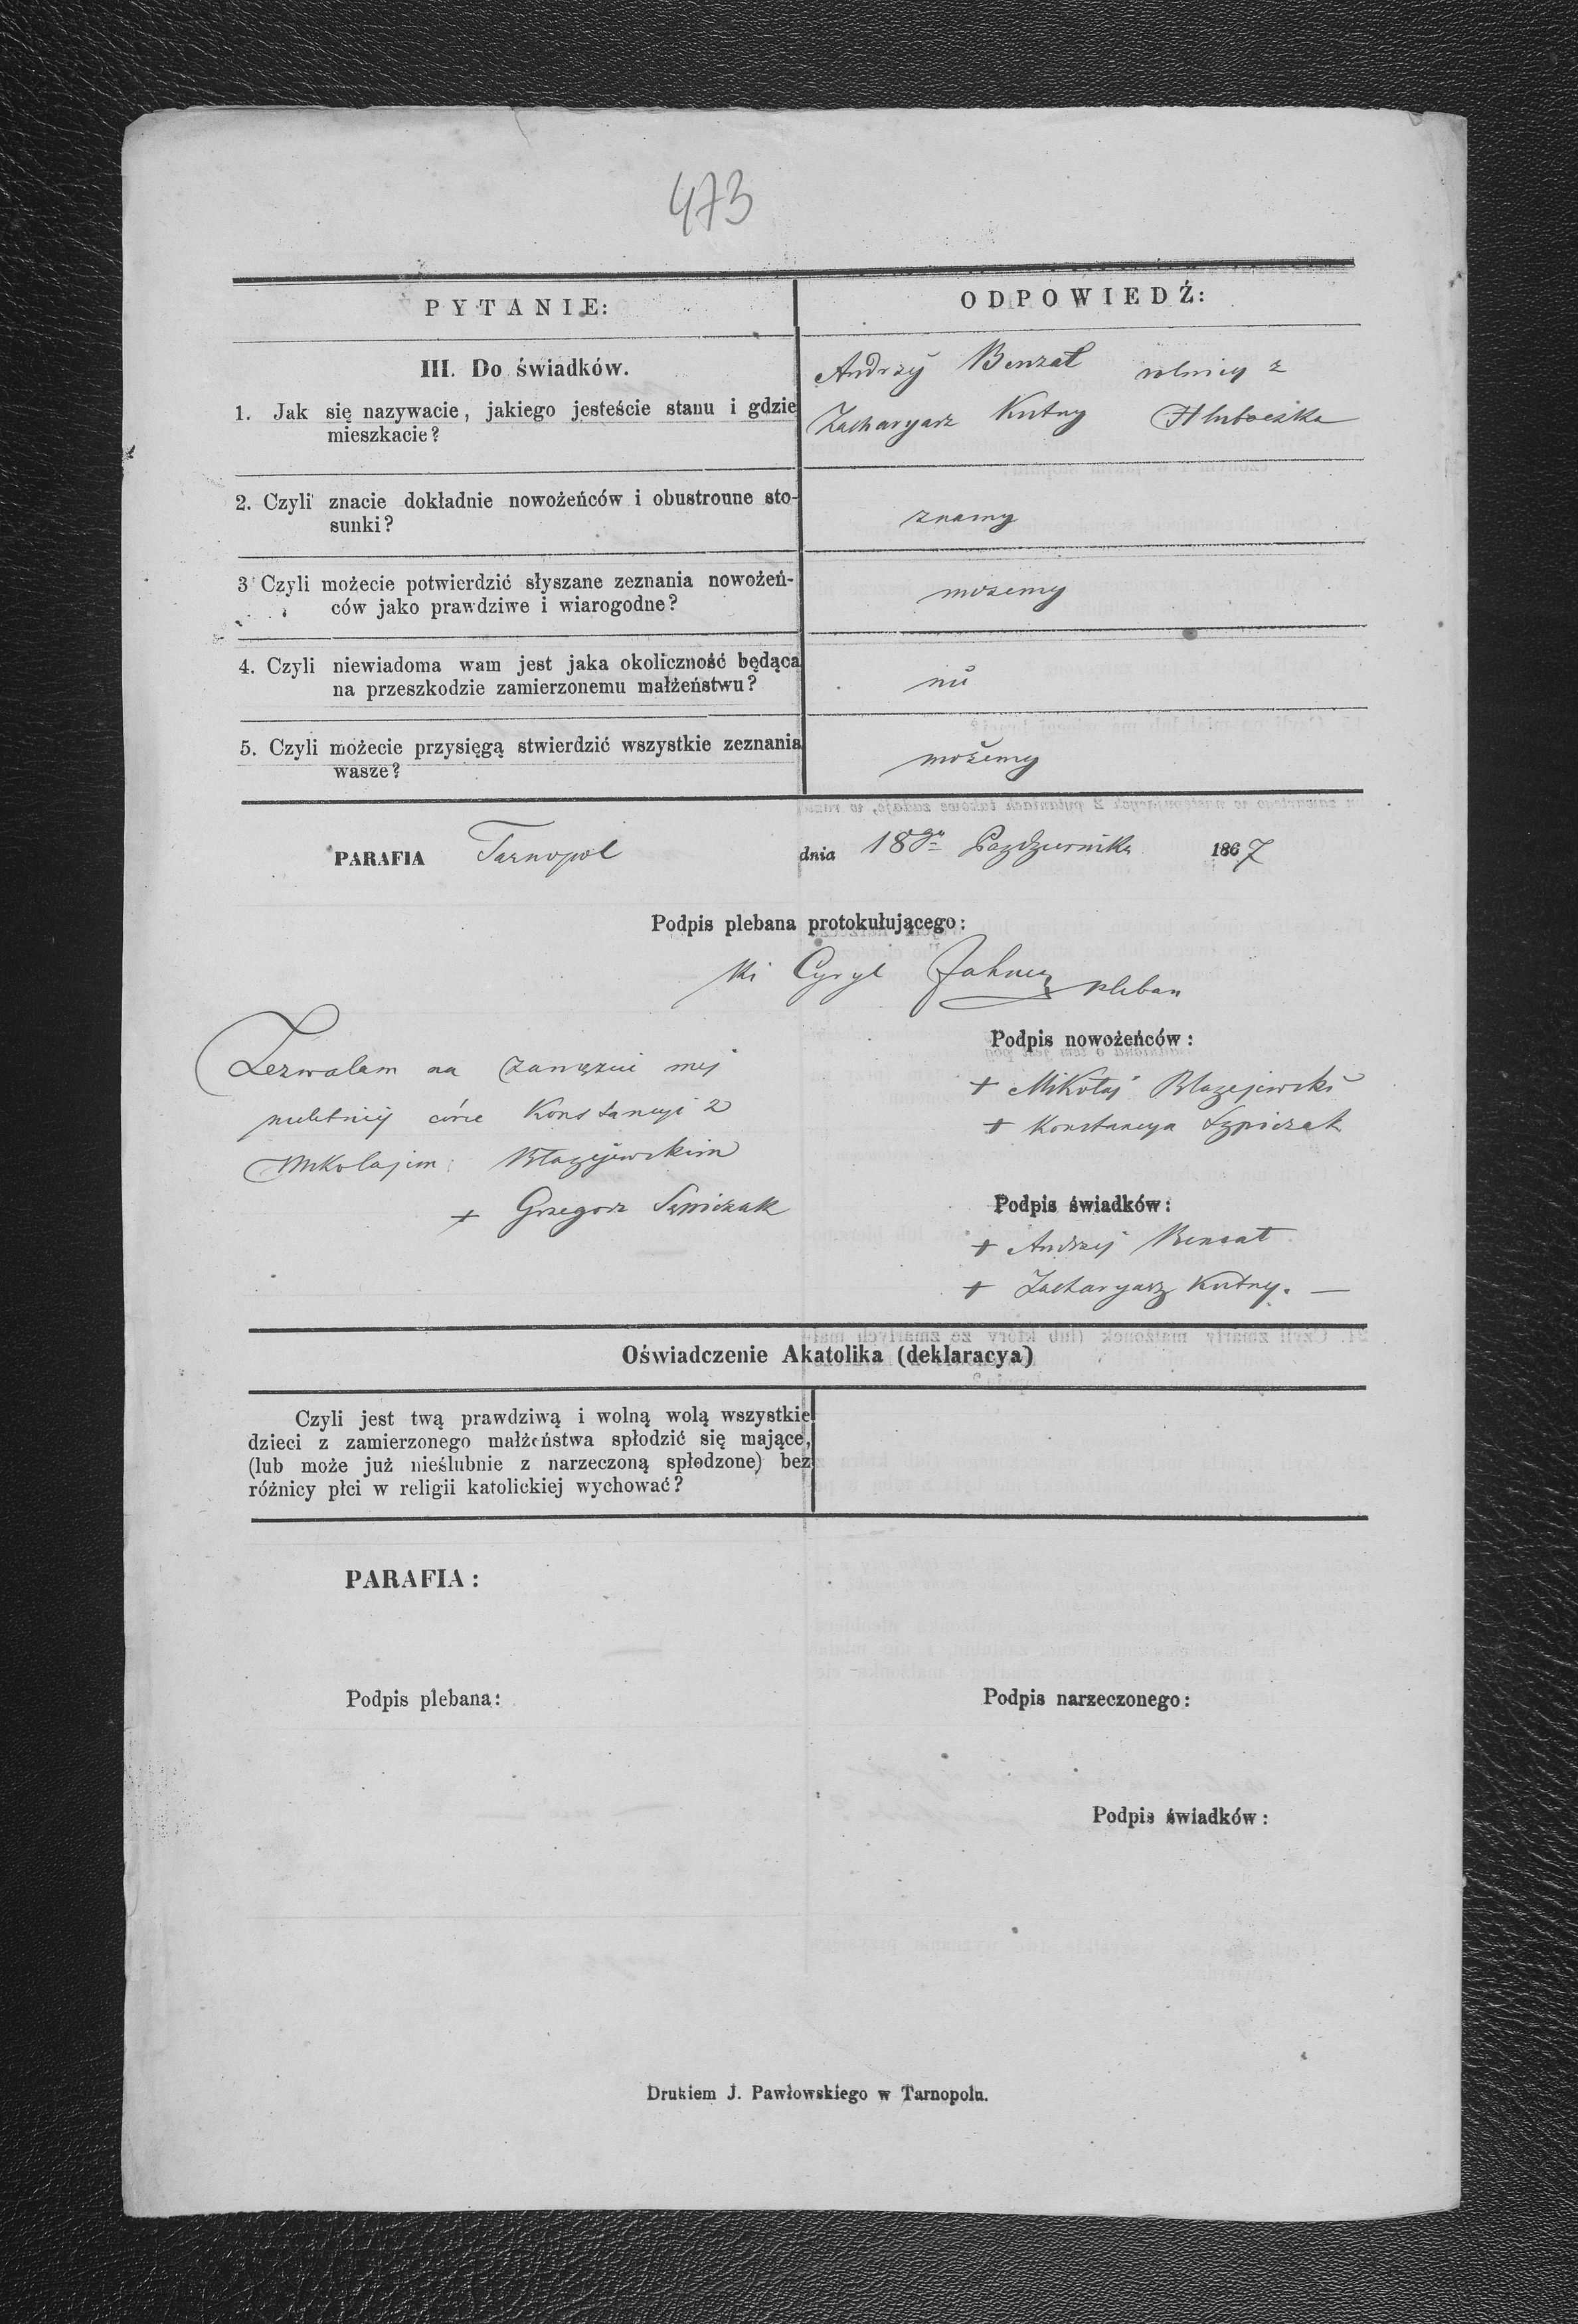 473
PYTANIE:
ODPOWIEDŹ:
III. Do świadków.
1. Jak się nazywacie, jakiego jesteście stanu i gdzie
mieszkacie?
Andrzéj Benzał rolnicy z
Zacharyasz Kutny Hluboczka
2. Czyli znacie dokładnie nowożeńców i obustronne sto-
sunki?
znamy
3 Czyli możecie potwierdzić słyszane zeznania nowożeń-
ców jako prawdziwe i wiarogodne?
możemy
4. Czyli niewiadoma wam jest jaka okoliczność będąca
na przeszkodzie zamierzonemu małżeństwu?
nié
5. Czyli możecie przysięgą stwierdzić wszystkie zeznania
wasze?
możemy
PARAFIA Tarnopol dnia 18go Pazdziernika 1867
Podpis plebana protokułującego:
Cyryl pleban
Podpis nowożeńców:
+ Mikołaj Błazejewski
+ Konstancya Szpiczak
Zezwalam na zamęzcie mej
nieletniej córce Konstancyi z
Mikolajem Błazejewskim
+ Grzegorz Szpiczak
Podpis świadków:
+ Andrzej Benzat
+ Zacharyasz Kutny. —
Oświadczenie Akatolika (deklaracya)
Czyli jest twą prawdziwą i wolną wolą wszystkie
dzieci z zamierzonego małżeństwa spłodzić się mające,
(lub może już nieślubnie z narzeczoną spłodzone) bez
różnicy płci w religii katolickiej wychować?
PARAFIA:
Podpis plebana:
Podpis narzeczonego:
Podpis świadków:
Drukiem J. Pawłowskiego w Tarnopolu.